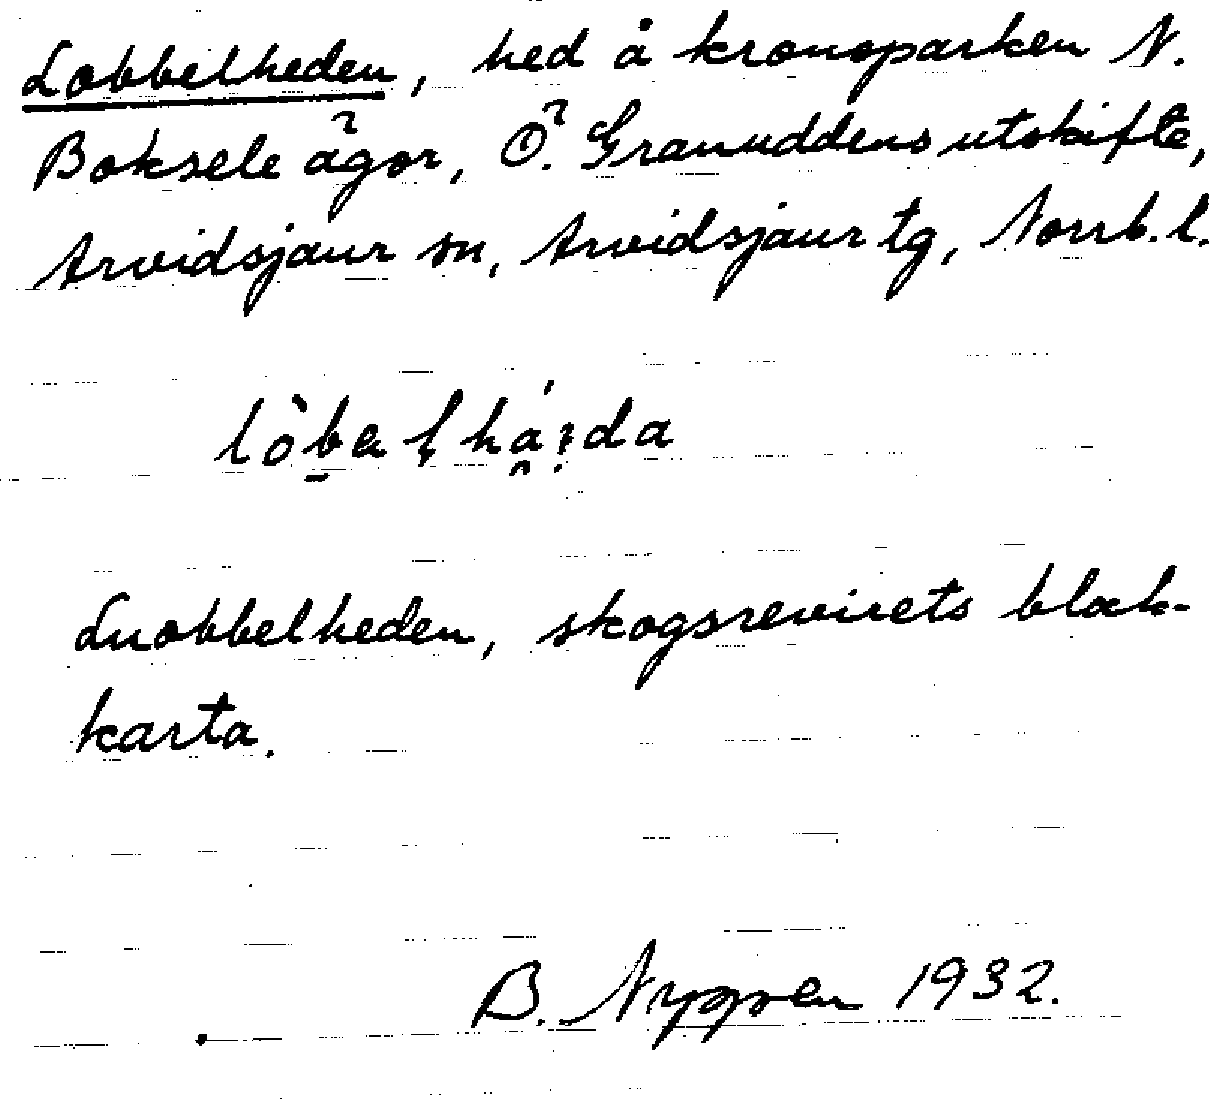 Lobbelheden, hed å kronoparken N.
Boksele ägor, Ö. Granuddens utskifte,
Arvidsjaur sn, Arvidsjaur tg, Norrb. l.
Luobbelheden, skogsrevirets block-
karta.
B. Nygren 1932.